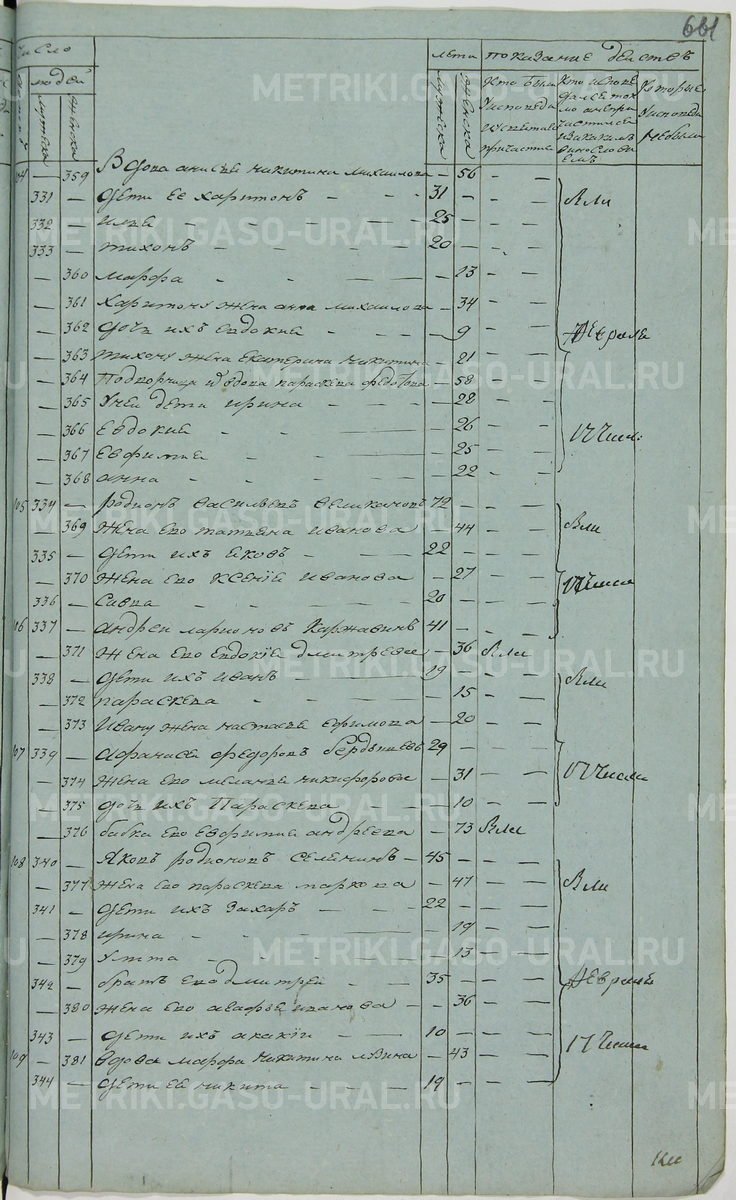 661
число
людей
лета
показание действъ
мужеска
женска
мужеска
женска
кто были
у исповеди
и святаго
причастия
которые
у исповеди
не были
104 — 359 Вдова анисья никитина михаилова — 56 — —
331 — дети ее харитонъ — 31 — — — Яли
332 — илья — 25 — — —
333 — тихонъ — 20 — — —
— 360 марфа — 13 — —
— 361 харитону жена анна михаилова — 34 — —
— 362 дочь ихъ евдокия — 9 — — февраля
— 363 тихону жена екатерина никитина — 21 — —
— 364 вдова параскева федотова — 58 — —
— 365 у ней дети ирина — 28 — —
— 366 евдокия — 26 — — 17 числ
— 367 евфимия — 25 — —
— 368 анна — 22 — —
105 334 — родионъ васильевъ великановъ 72 — — —
— 369 жена его татьяна иванова — 44 — — Яли
335 — дети ихъ яковъ — 22 — — —
— 370 жена его ксения иванова — 27 — — 17 числа
336 — савва — 20 — — —
106 337 — андреи ларионовъ каржавинъ 41 — — —
— 371 жена его евдокия дмитрева — 36 Яли
338 — дети ихъ иванъ — 19 — — — Яли
— 372 параскева — 15 — —
— 373 ивану жена настасья ефимова — 20 — —
107 339 — афанасеи федоровъ бердышевъ 29 — — —
— 374 жена его меланья никифорова — 31 — — 17 числа
— 375 дочь ихъ параскева — 10 — —
— 376 бабка его евфимия андреева — 73 Яли
108 340 — яковъ родионовъ селенинъ — 45 — — —
— 377 жена его параскева маркова — 47 — — Яли
341 — дети ихъ захаръ — 22 — — —
— 378 ирина — 19 — —
— 379 улита — 13 — —
342 — братъ его дмитреи — 35 — — — февраля
— 380 жена его агафья иванова — 36 — —
343 — дети ихъ акакии — 10 — — —
109 — 381 вдова марфа никитина — 43 — — 17 числа
344 — дети ее никита — 19 — — —
METRIKI.GASO-URAL.RU